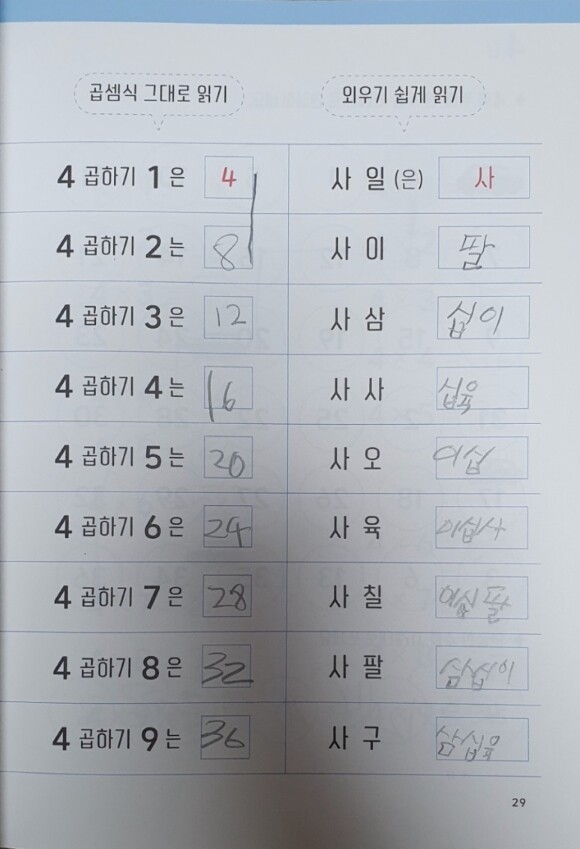 곱셈식 그대로 읽기 외우기 쉽게 읽기
4 곱하기 1은 4 사 일(은) 사
4 곱하기 2는 8 사 이 팔
4 곱하기 3은 12 사 삼 십이
4 곱하기 4는 16 사 사 십육
4 곱하기 5는 20 사 오 이십
4 곱하기 6은 24 사 육 이십사
4 곱하기 7은 28 사 칠 이십팔
4 곱하기 8은 32 사 팔 삼십이
4 곱하기 9는 36 사 구 삼십육
29